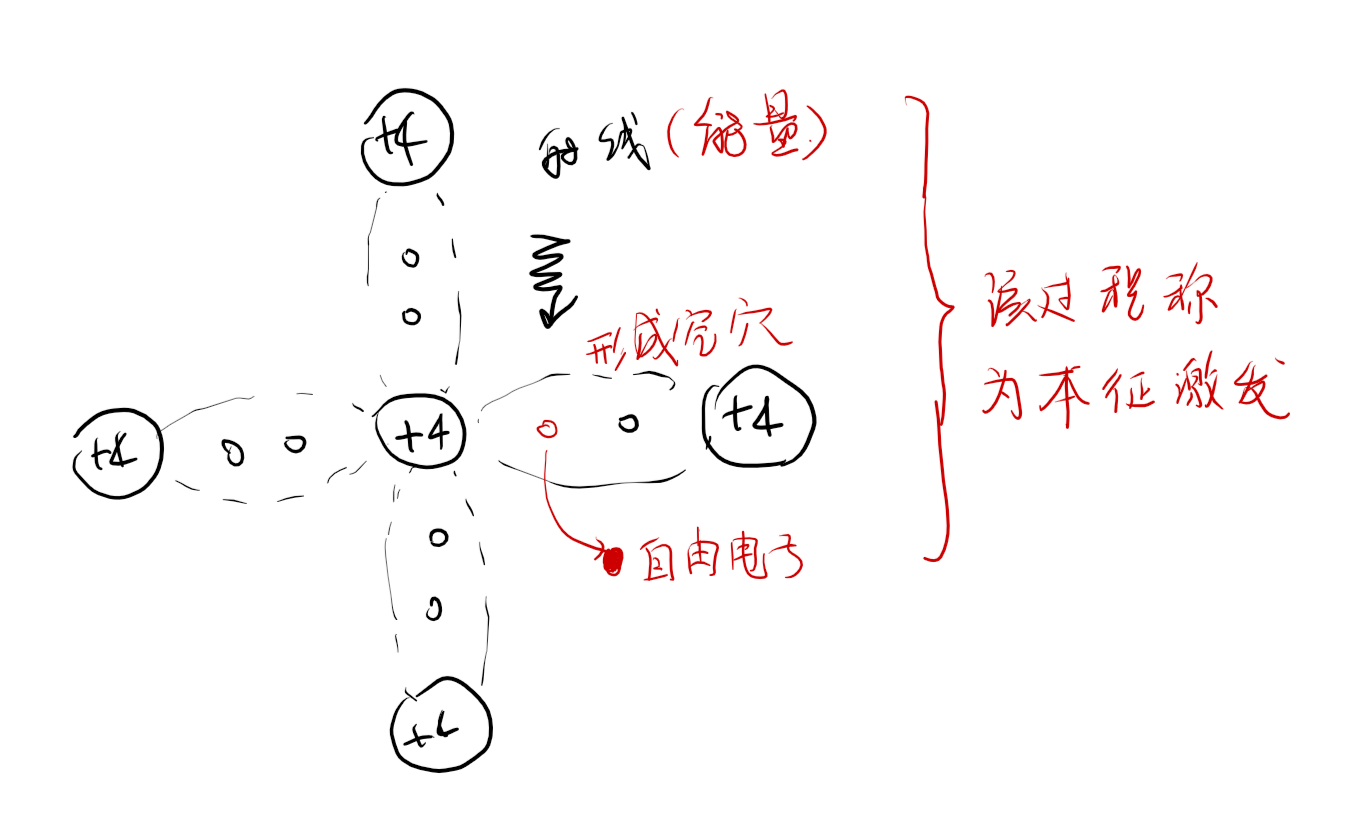 +4
射线(能量)
形成空穴
+4
+4
+4
自由电子
+4
该过程称
为本征激发